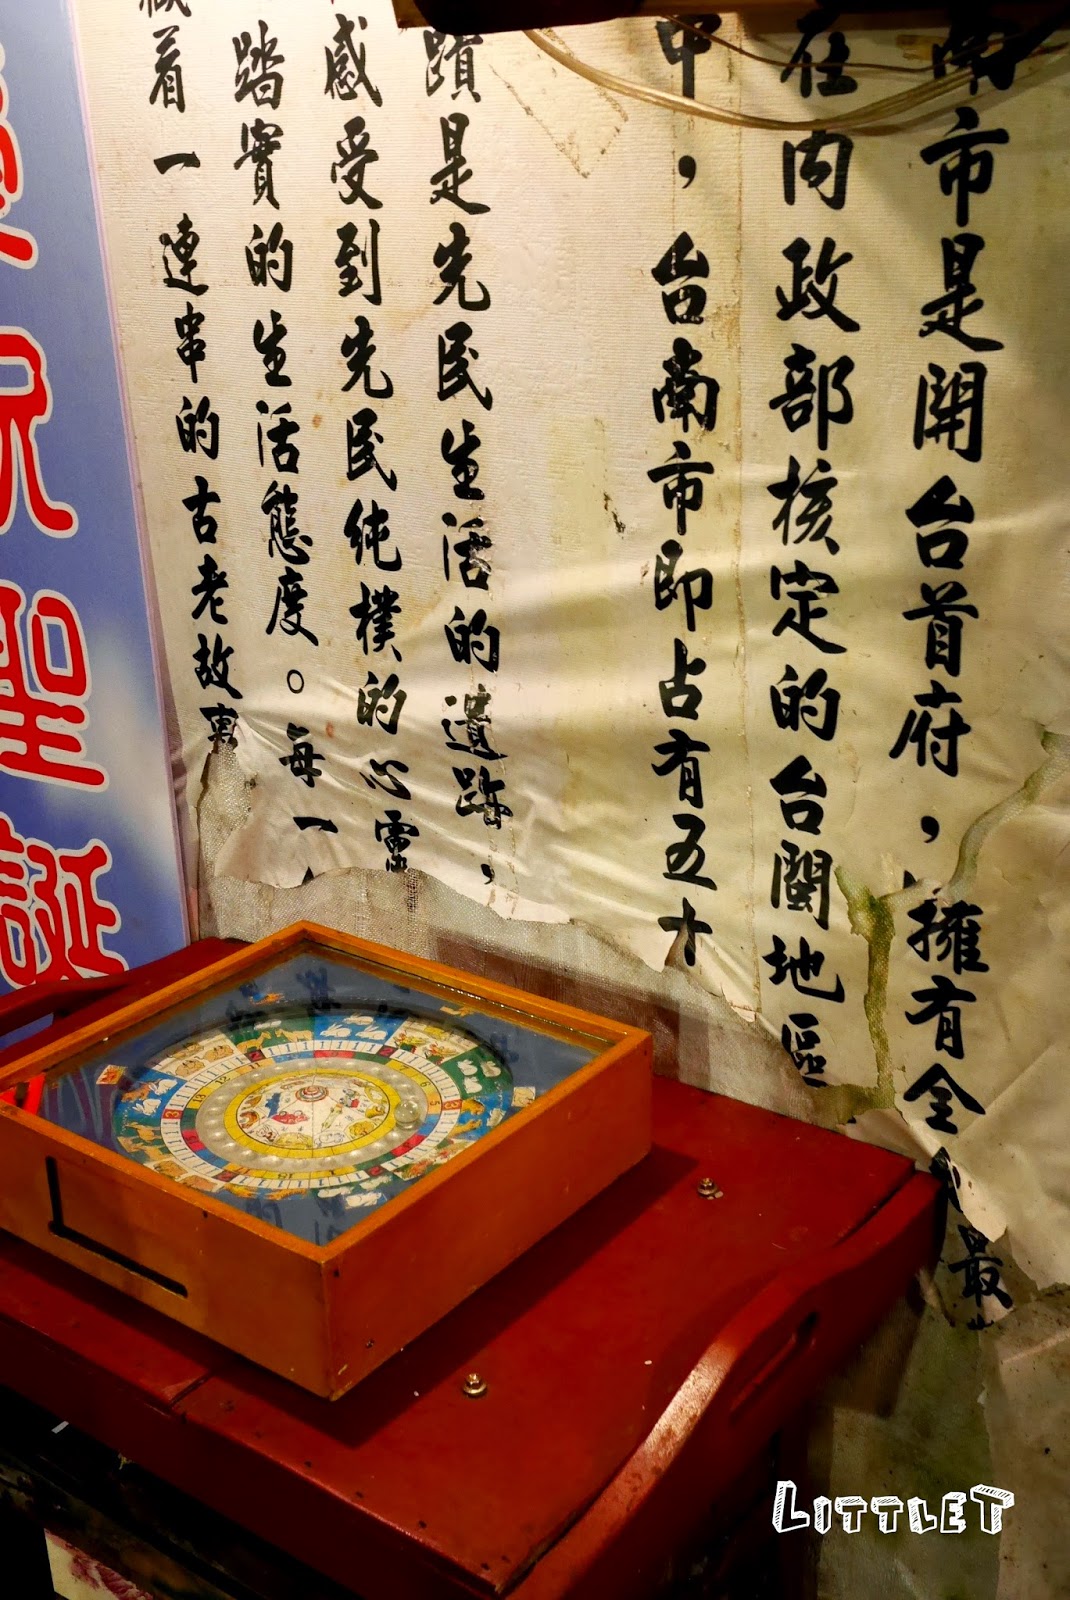 南市是開台首府，擁有全
最
在內政部核定的台閩地區
中，台南市即占有五十
蹟是先民生活的遺跡，
感受到先民純樸的心靈
踏實的生活態度。每一
藏着一連串的古老故事
祝聖誕
LITTLET